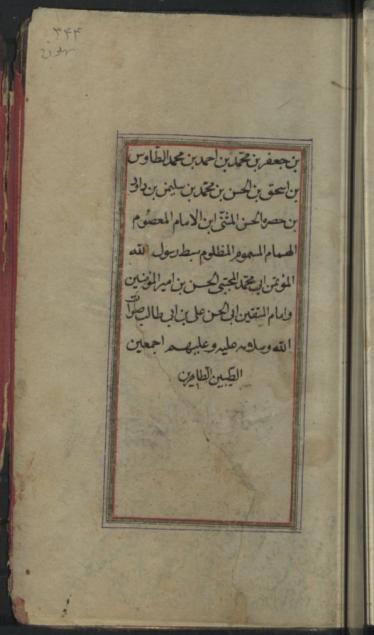 ٣٤٤
بن جعفر بن محمد بن احمد بن محمد الطاوس
بن اسحق بن الحسن بن محمد بن سليمن بن داود
بن حضرة الحسن المثنى ابن الامام المعصوم
الهمام المسموم المظلوم سبط رسول الله
المؤتمن ابى محمد المجتبى الحسن بن امير المؤمنين
وامام المتقين ابى الحسن على بن ابى طالب صلوات
الله وسلامه عليه وعليهم اجمعين
الطيبين الطاهرين